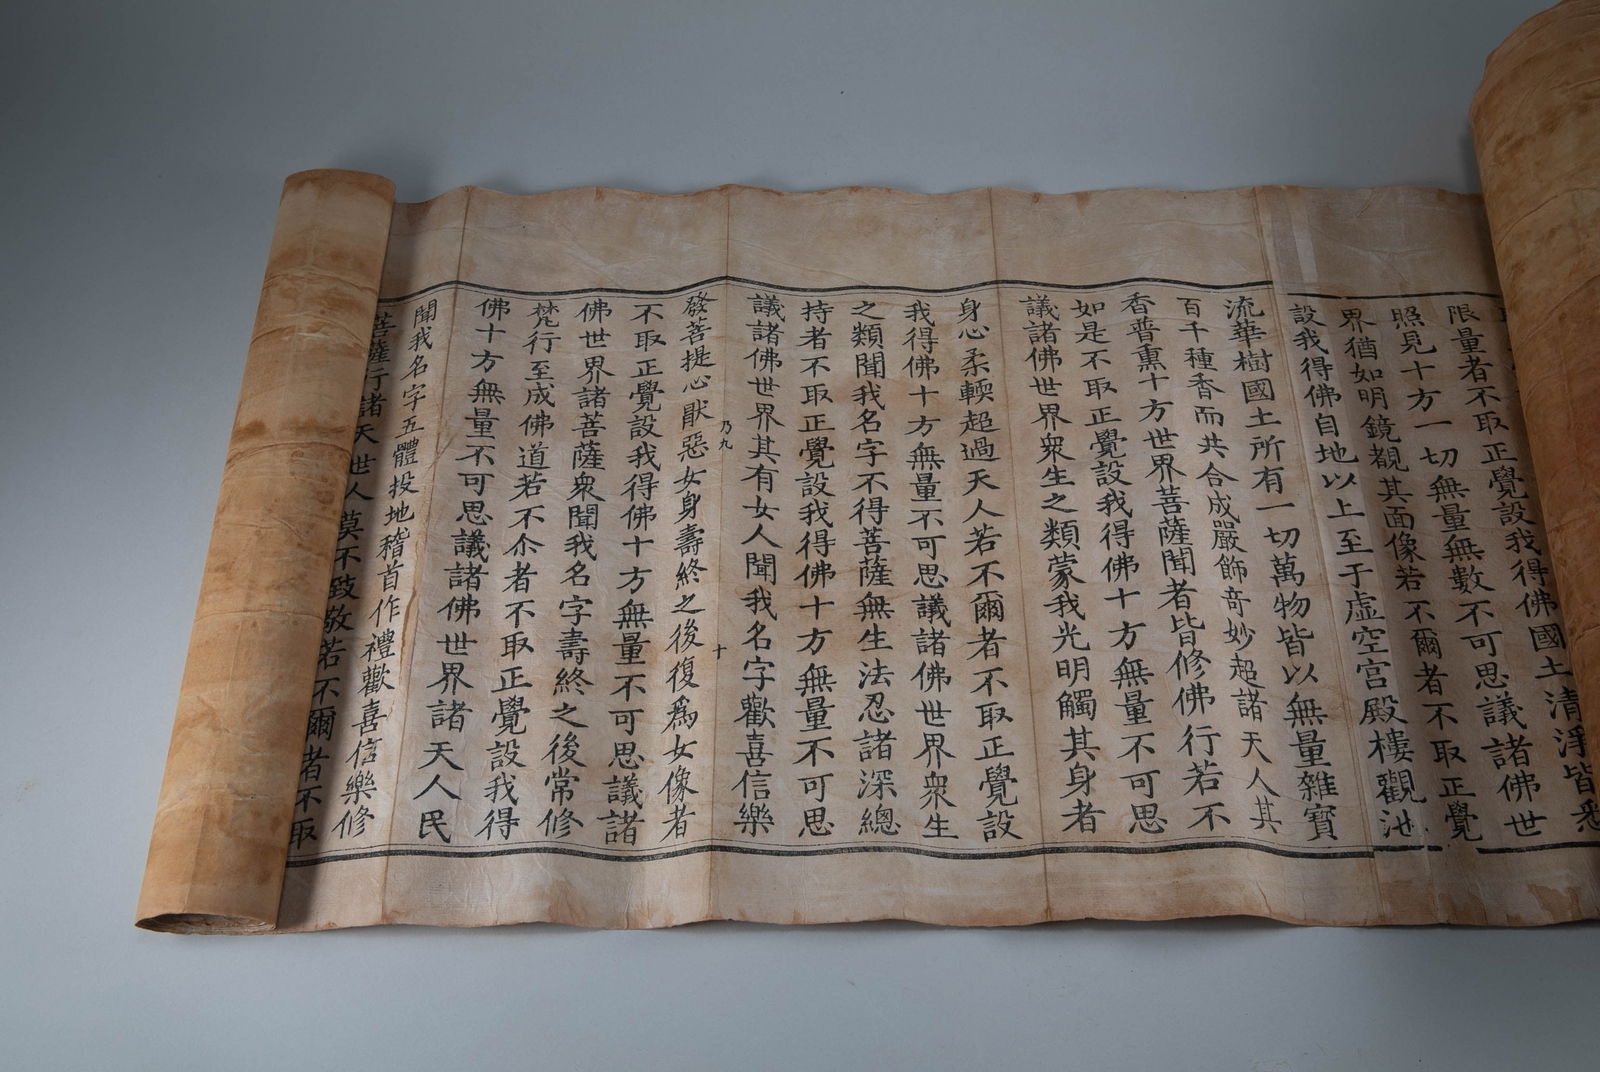 限量者不取正覺設我得佛國土清淨皆悉
照見十方一切無量無數不可思議諸佛世
界猶如明鏡覩其面像若不爾者不取正覺
設我得佛自地以上至于虛空宮殿樓觀池
流華樹國土所有一切萬物皆以無量雜寶
百千種香而共合成嚴飾竒妙超諸天人其
香普熏十方世界菩薩聞者皆修佛行若不
如是不取正覺設我得佛十方無量不可思
議諸佛世界衆生之類蒙我光明觸其身者
身心柔輭超過天人若不爾者不取正覺設
我得佛十方無量不可思議諸佛世界衆生
之類聞我名字不得菩薩無生法忍諸深總
持者不取正覺設我得佛十方無量不可思
議諸佛世界其有女人聞我名字歡喜信樂
乃九 十
發菩提心猒惡女身壽終之後復爲女像者
不取正覺設我得佛十方無量不可思議諸
佛世界諸菩薩衆聞我名字壽終之後常修
梵行至成佛道若不尒者不取正覺設我得
佛十方無量不可思議諸佛世界諸天人民
聞我名字五體投地稽首作禮歡喜信樂修
菩薩行諸天世人莫不致敬若不爾者不取